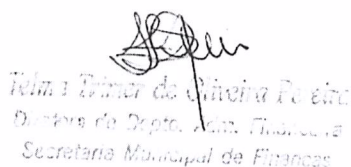 Telma de Oliveira
Diretora de Depto. Adm. Financeira
Secretaria Municipal de Finanças